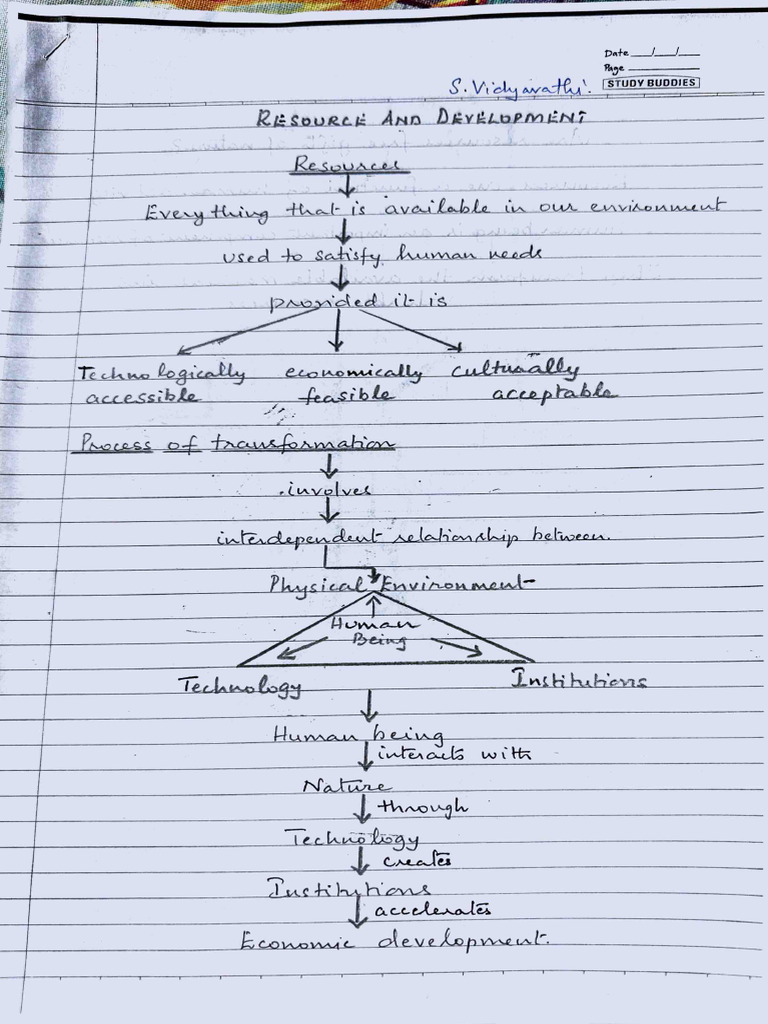 Date __/__/__
Page ________
STUDY BUDDIES
S. Vidyarathi.
RESOURCE AND DEVELOPMENT
Resources
Everything that is available in our environment
used to satisfy human needs
provided it is
Technologically economically culturally
accessible feasible acceptable
Process of transformation
involves
interdependent relationship between.
Physical Environment
Human
Being
Technology Institutions
Human being
interacts with
Nature
through
Technology
creates
Institutions
accelerates
Economic development.